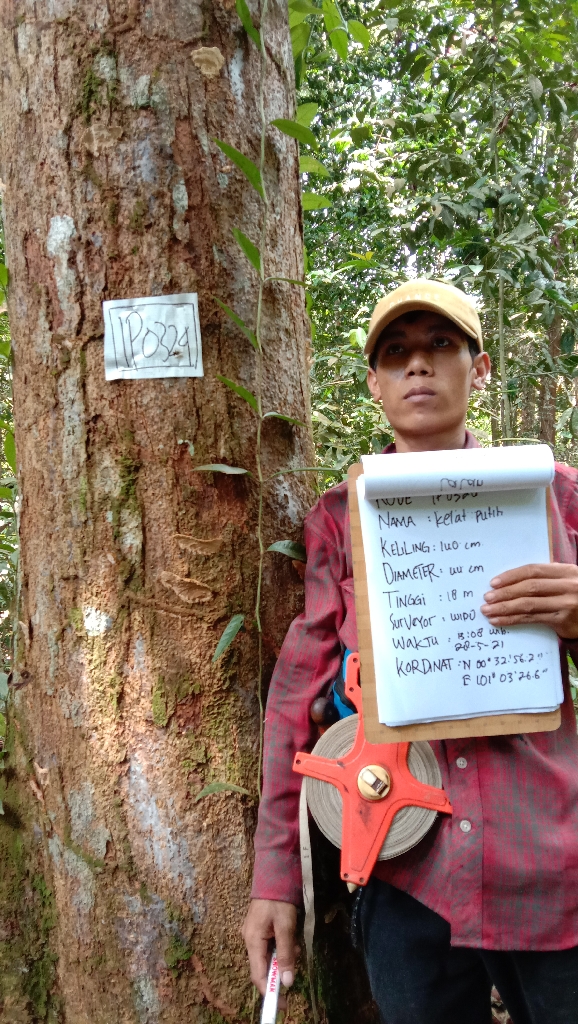 IP0324
KODE
NAMA : Kelat putih
KELILING : 140 cm
DIAMETER : 44 cm
TINGGI : 18 m
SURVEYOR : WIDO
WAKTU : 13:08 WIB.
28-5-21
KORDINAT : N 00° 32'56.2"
E 101° 03'26.6"
SNOWMAN